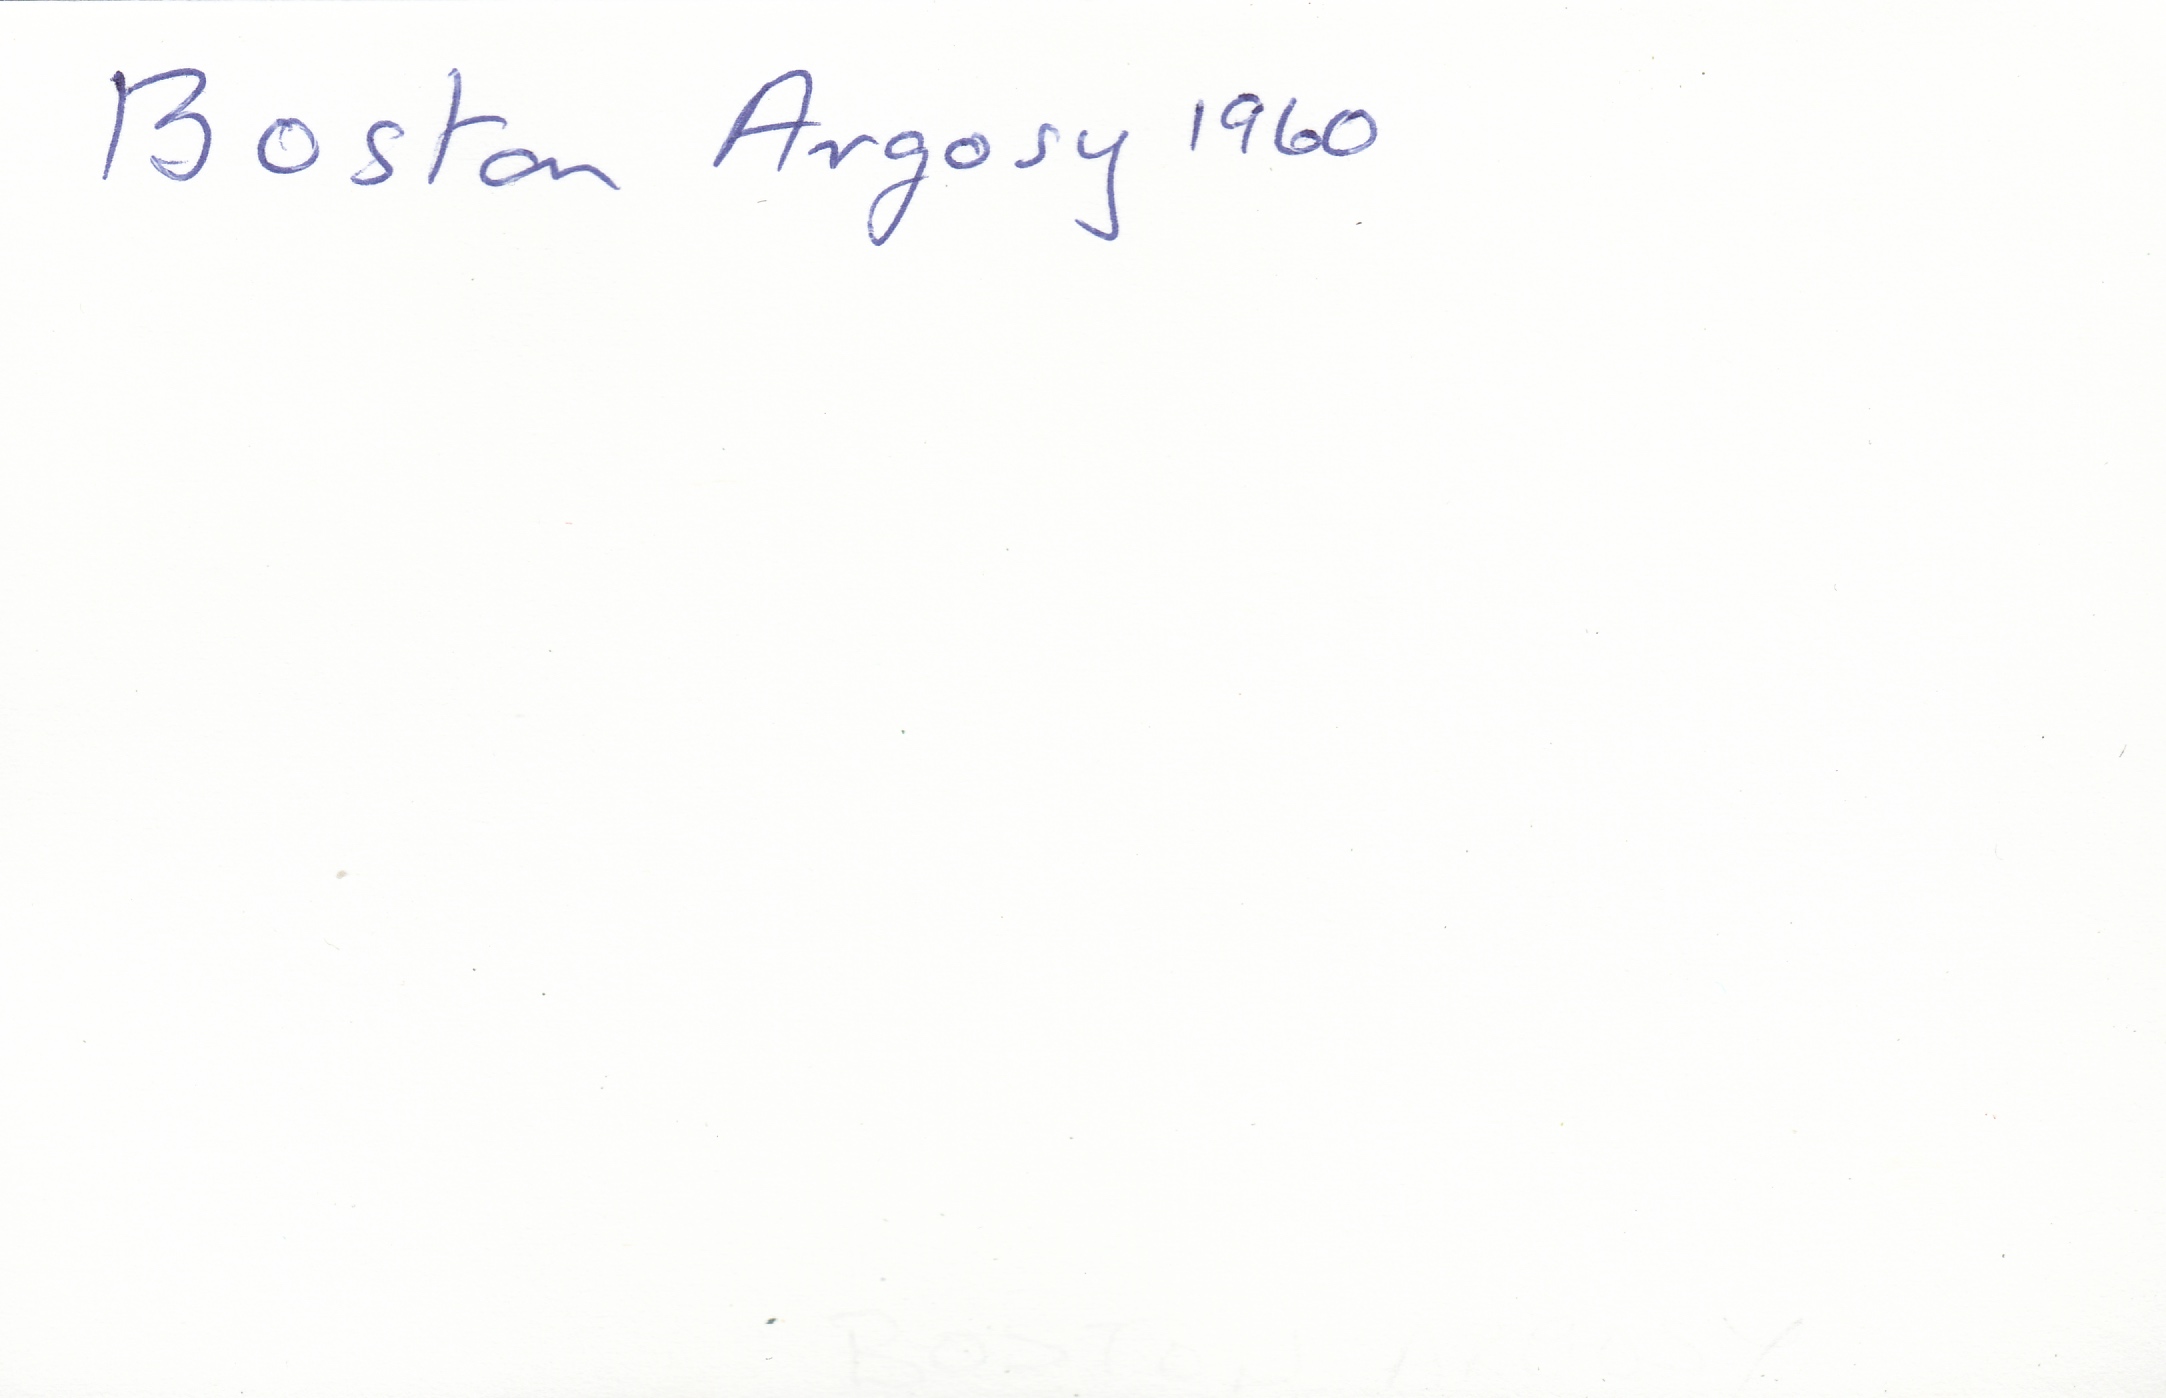 Boston Argosy 1960